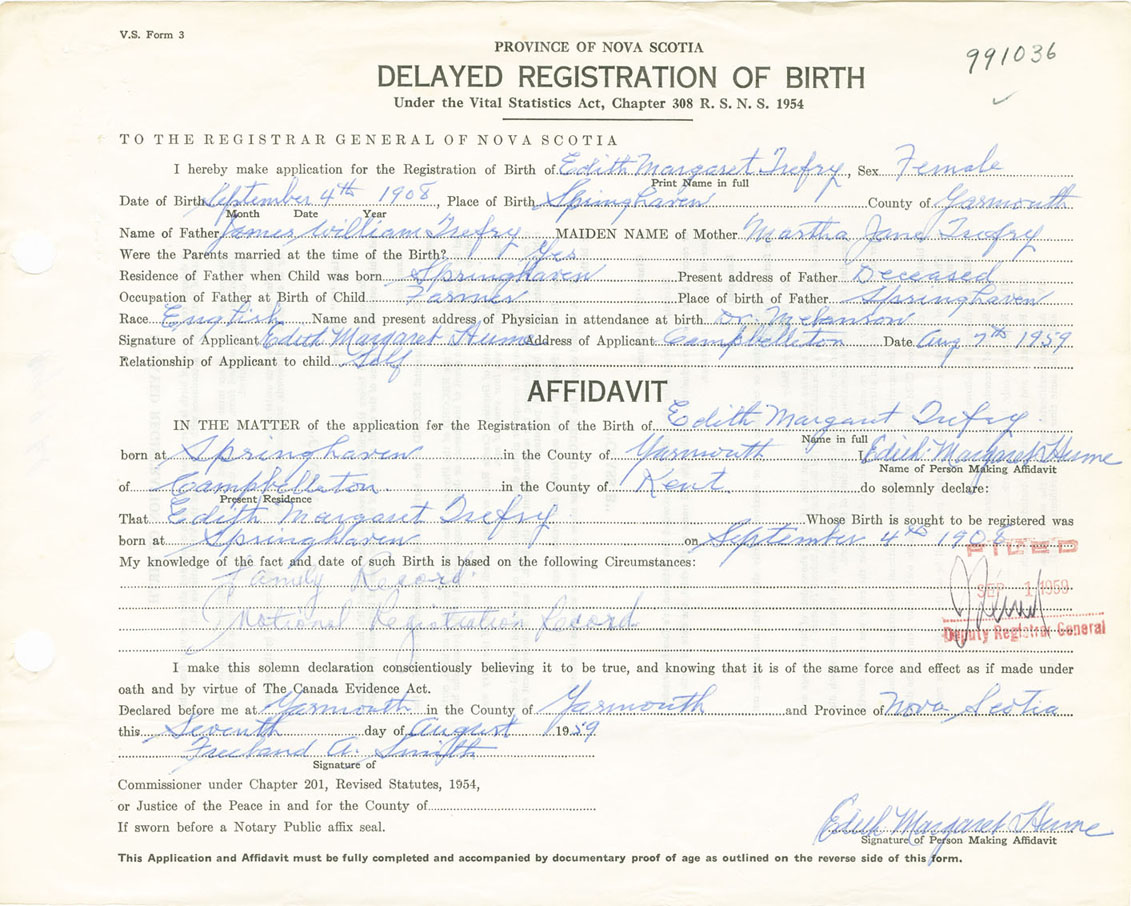 V.S. Form 3
PROVINCE OF NOVA SCOTIA
991036
DELAYED REGISTRATION OF BIRTH
Under the Vital Statistics Act, Chapter 308 R. S. N. S. 1954
TO THE REGISTRAR GENERAL OF NOVA SCOTIA
I hereby make application for the Registration of Birth of Edith Margaret Trefry, Sex Female
Print Name in full
Date of Birth September 4th 1908, Place of Birth Springhaven County of Yarmouth
Month Date Year
Name of Father James William Trefry MAIDEN NAME of Mother Martha Jane Trefry
Were the Parents married at the time of the Birth? Yes
Residence of Father when Child was born Springhaven Present address of Father Deceased
Occupation of Father at Birth of Child Farmer Place of birth of Father Springhaven
Race English Name and present address of Physician in attendance at birth Dr. Melanson
Signature of Applicant Edith Margaret Hume Address of Applicant Campbellton Date Aug 7th 1959
Relationship of Applicant to child Self
AFFIDAVIT
IN THE MATTER of the application for the Registration of the Birth of Edith Margaret Trefry
Name in full
born at Springhaven in the County of Yarmouth I Edith Margaret Hume
Name of Person Making Affidavit
of Campbellton in the County of Kent do solemnly declare:
Present Residence
That Edith Margaret Trefry Whose Birth is sought to be registered was
born at Springhaven on September 4th 1908
FILED
My knowledge of the fact and date of such Birth is based on the following Circumstances:
Family Record
SEP 1 1959
National Registration Record
Deputy Registrar General
I make this solemn declaration conscientiously believing it to be true, and knowing that it is of the same force and effect as if made under
oath and by virtue of The Canada Evidence Act.
Declared before me at Yarmouth in the County of Yarmouth and Province of Nova Scotia
this Seventh day of August 1959
Freeland A. Smith
Signature of
Commissioner under Chapter 201, Revised Statutes, 1954,
or Justice of the Peace in and for the County of
If sworn before a Notary Public affix seal.
Edith Margaret Hume
Signature of Person Making Affidavit
This Application and Affidavit must be fully completed and accompanied by documentary proof of age as outlined on the reverse side of this form.